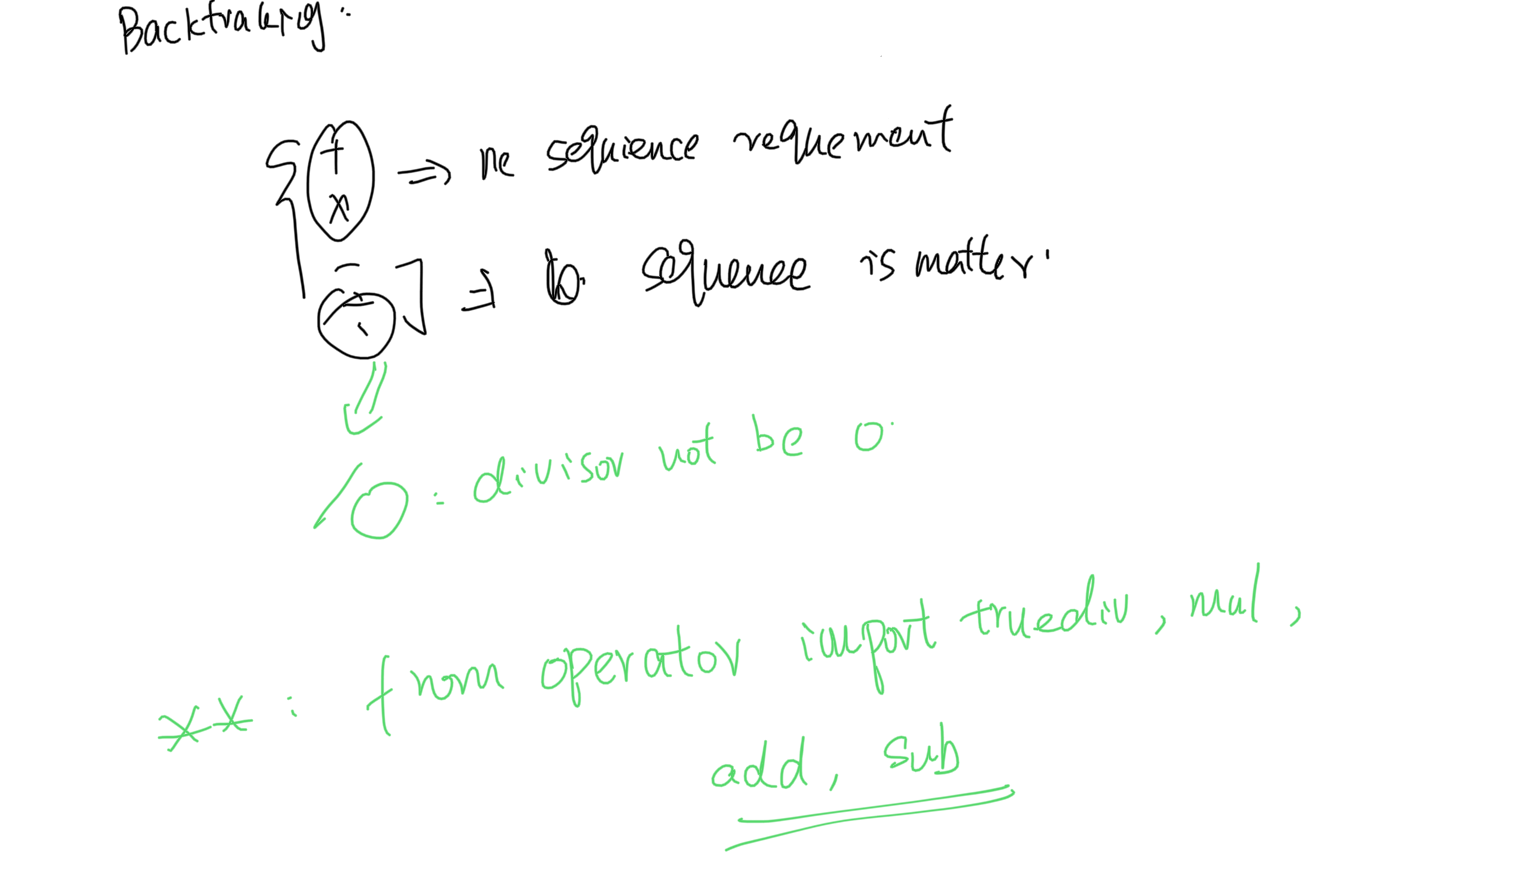 Backtraking:
+ ⇒ no sequience requement
×
-
÷ ⇒ sequence is matter.
/0 : divisor not be 0.
** : from operator import truediv, mul,
add, sub